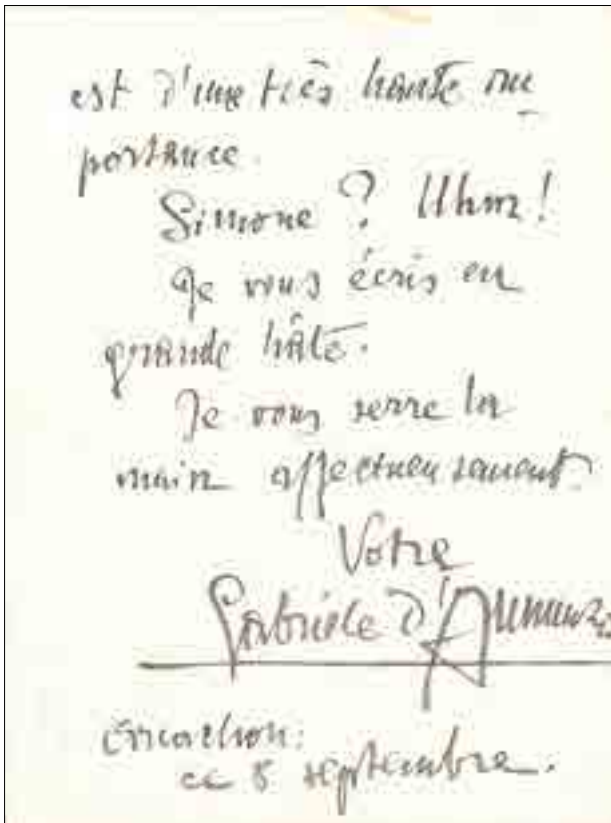 est d'une très haute im
portance.
Simone? Uhm!
Je vous écris en
grande hâte.
Je vous serre la
main affectueusement.
Votre
Gabriele d'Annunzio
Arcachon:
ce 8 septembre.